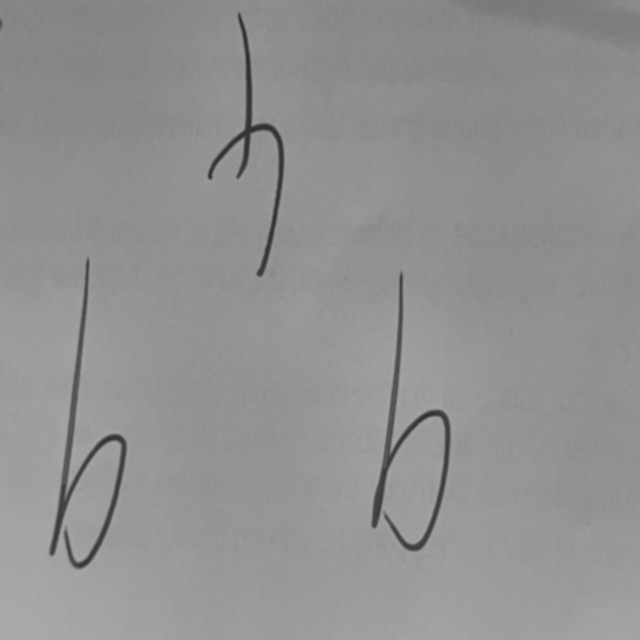 h
b b